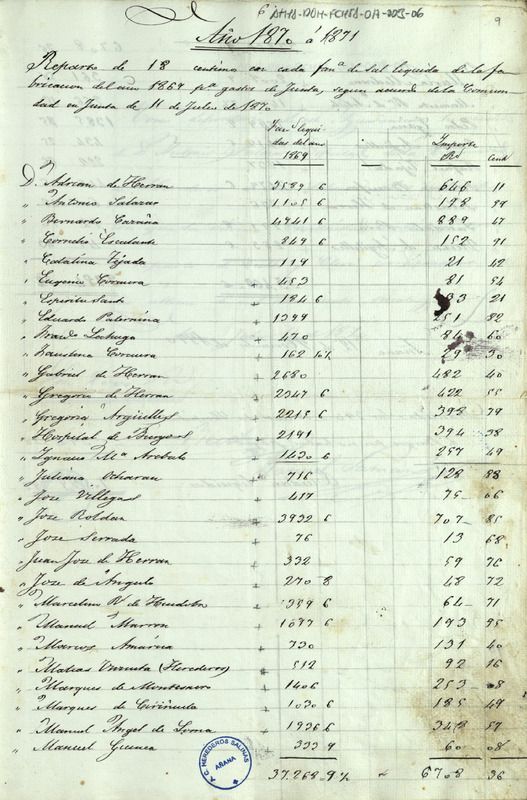 6 AHHA-DDH-FCHSA-OA-223-06
9
Año 1870 á 1871
Reparto de 18 centimo con cada fanª de sal liquida de la fa
bricacion del año 1869 pª gastos de Junta, segun acuerdo de la Comuni
dad en Junta de 11 de Julio de 1870
Fan liqui
das del año
1869
Importe
Rs Cent
D. Adrian de Herran 3589 6 646 11
" Antonio Salazar 1105 6 198 99
" Bernardo Caraña 4941 6 889 47
" Cornelio Escalante 849 6 152 91
" Catalina Tejada 119 21 42
" Eugenio Corcuera 453 81 54
" Espiritu Santo 184 6 33 21
" Eduardo Paternina 1399 251 82
" 470 84 60
" Faustina Corcuera 162 10½ 29 30
" Gabriel de Herran 2680 482 40
" Gregorio de Herran 2347 6 422 55
" Gregoria Arguelles 2215 6 398 79
" Hospital de Burgos 2191 394 38
" Ignacio Mª Arebalo 1430 6 257 49
" Juliana Ocharan 716 128 88
" Jose Villegas 417 75 06
" Jose Roldan 3932 6 707 85
" Jose Serrada 76 13 68
" Juan Jose de Herran 332 59 76
" Jose de Angulo 270 8 48 72
" Marcelino R. de 359 6 64 71
" Manuel Marron 1077 6 193 95
" Marcos Amarica 730 131 40
" Matias (Herederos) 512 92 16
" Marques de Montesacro 1406 253 08
" Marques de Ciriñuela 1030 6 185 49
" Manuel Angel de Loma 1936 6 348 57
" Manuel Guinea 333 9 60 08
37.268 9½ " 6708 36
A.C. HEREDEROS SALINAS
AÑANA